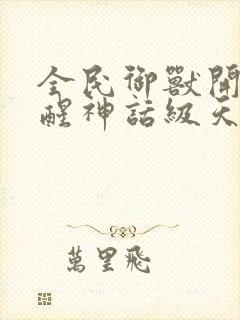 全民御獸開
醒神話級天
萬里飛